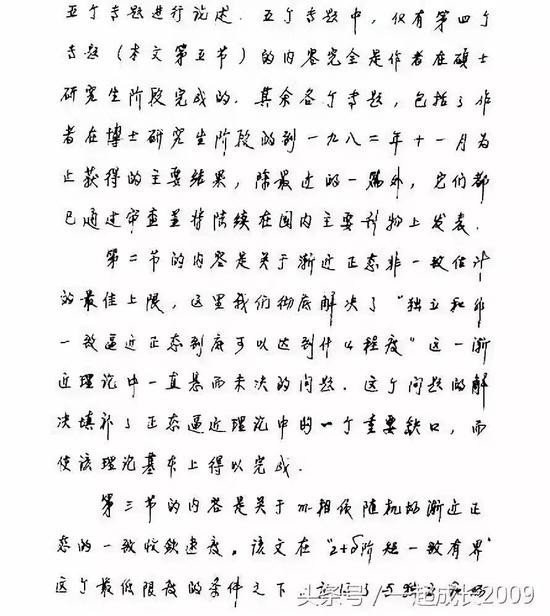 五个专题进行论述. 五个专题中, 仅有第四个
专题(本文第五节)的内容完全是作者在硕士
研究生阶段完成的. 其余各个专题, 包括了作
者在博士研究生阶段的到一九八二年十一月为
止获得的主要结果, 除最近的一篇外, 它们都
已通过审查并将陆续在国内主要刊物上发表.
第二节的内容是关于渐近正态非一致估计
的最佳上限, 这里我们彻底解决了“独立和非
一致逼近正态到底可以达到什么程度”这一渐
近理论中一直悬而未决的问题. 这个问题的解
决填补了正态逼近理论中的一个重要缺口, 而
使该理论基本上得以完成.
第三节的内容是关于m-相依随机场渐近正
态的一致收敛速度。该文在“2+δ阶矩一致有界”
这个最低限度的条件之下
头条号/一起成长2009